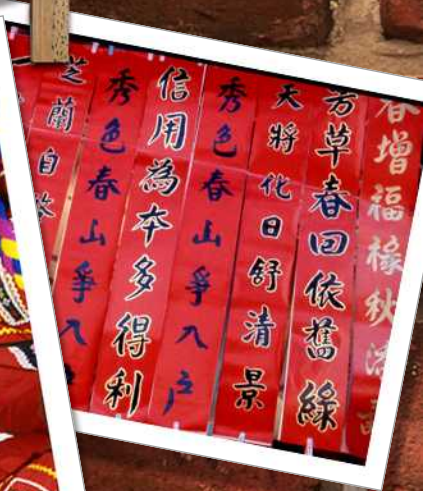 春增福祿秋
芳草春回依舊綠
天將化日舒清景
秀色春山爭入戶
信用為本多得利
秀色春山爭入
芝蘭自